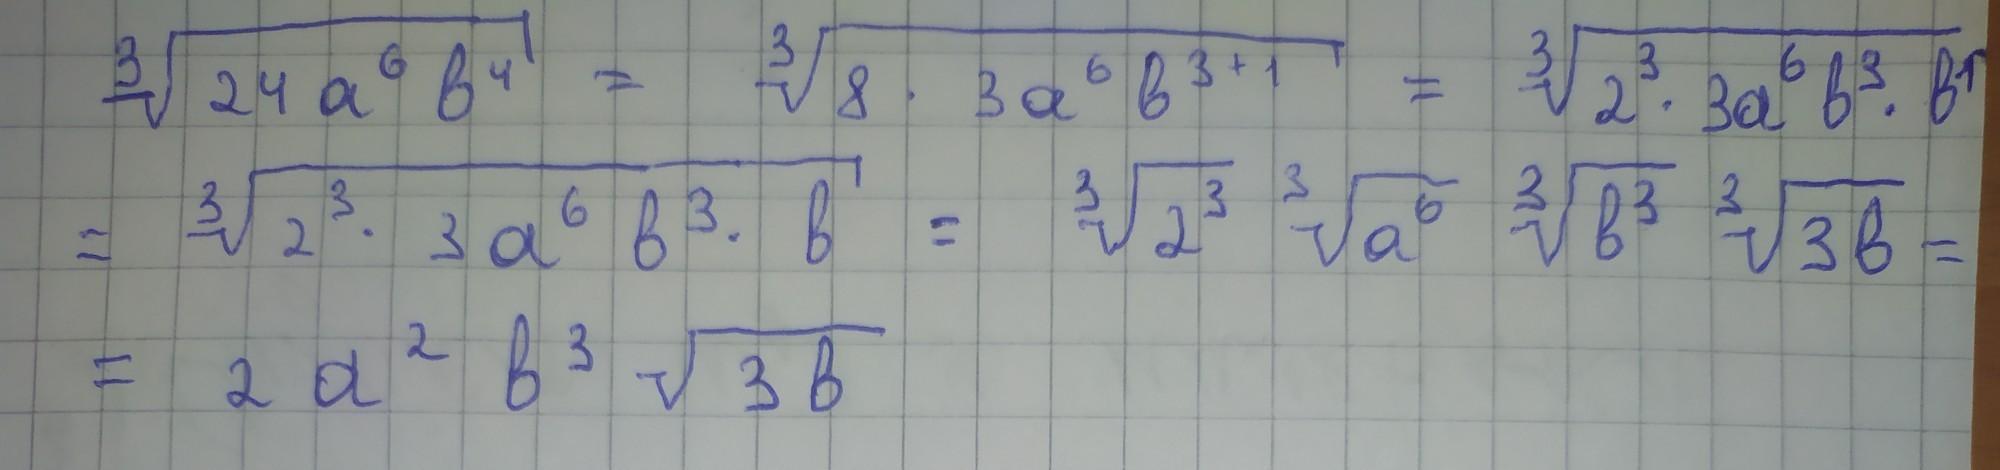 ∛(24a⁶b⁴) = ∛(8 · 3a⁶b³⁺¹) = ∛(2³ · 3a⁶b³ · b¹)
= ∛(2³ · 3a⁶b³ · b) = ∛(2³) ∛(a⁶) ∛(b³) ∛(3b) =
= 2a²b ³√(3b)